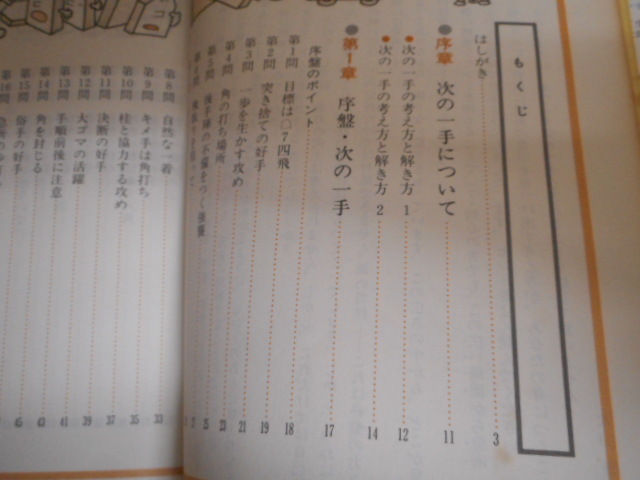 もくじ
はしがき 3
●序章 次の一手について 11
●次の一手の考え方と解き方 1 12
●次の一手の考え方と解き方 2 14
●第1章 序盤・次の一手
序盤のポイント 17
第1問 目標は□7四飛 18
第2問 突き捨ての好手 19
第3問 一歩を生かす攻め 21
第4問 角の打ち場所 23
第5問 後手陣の不備をつく強襲 25
第8問 自然な一着 33
第9問 キメ手は角打ち 35
第10問 桂と協力する攻め 37
第11問 決断の好手 39
第12問 大ゴマの活躍 41
第13問 手順前後に注意 43
第14問 角を封じる 45
第15問 俗手の好手
第16問